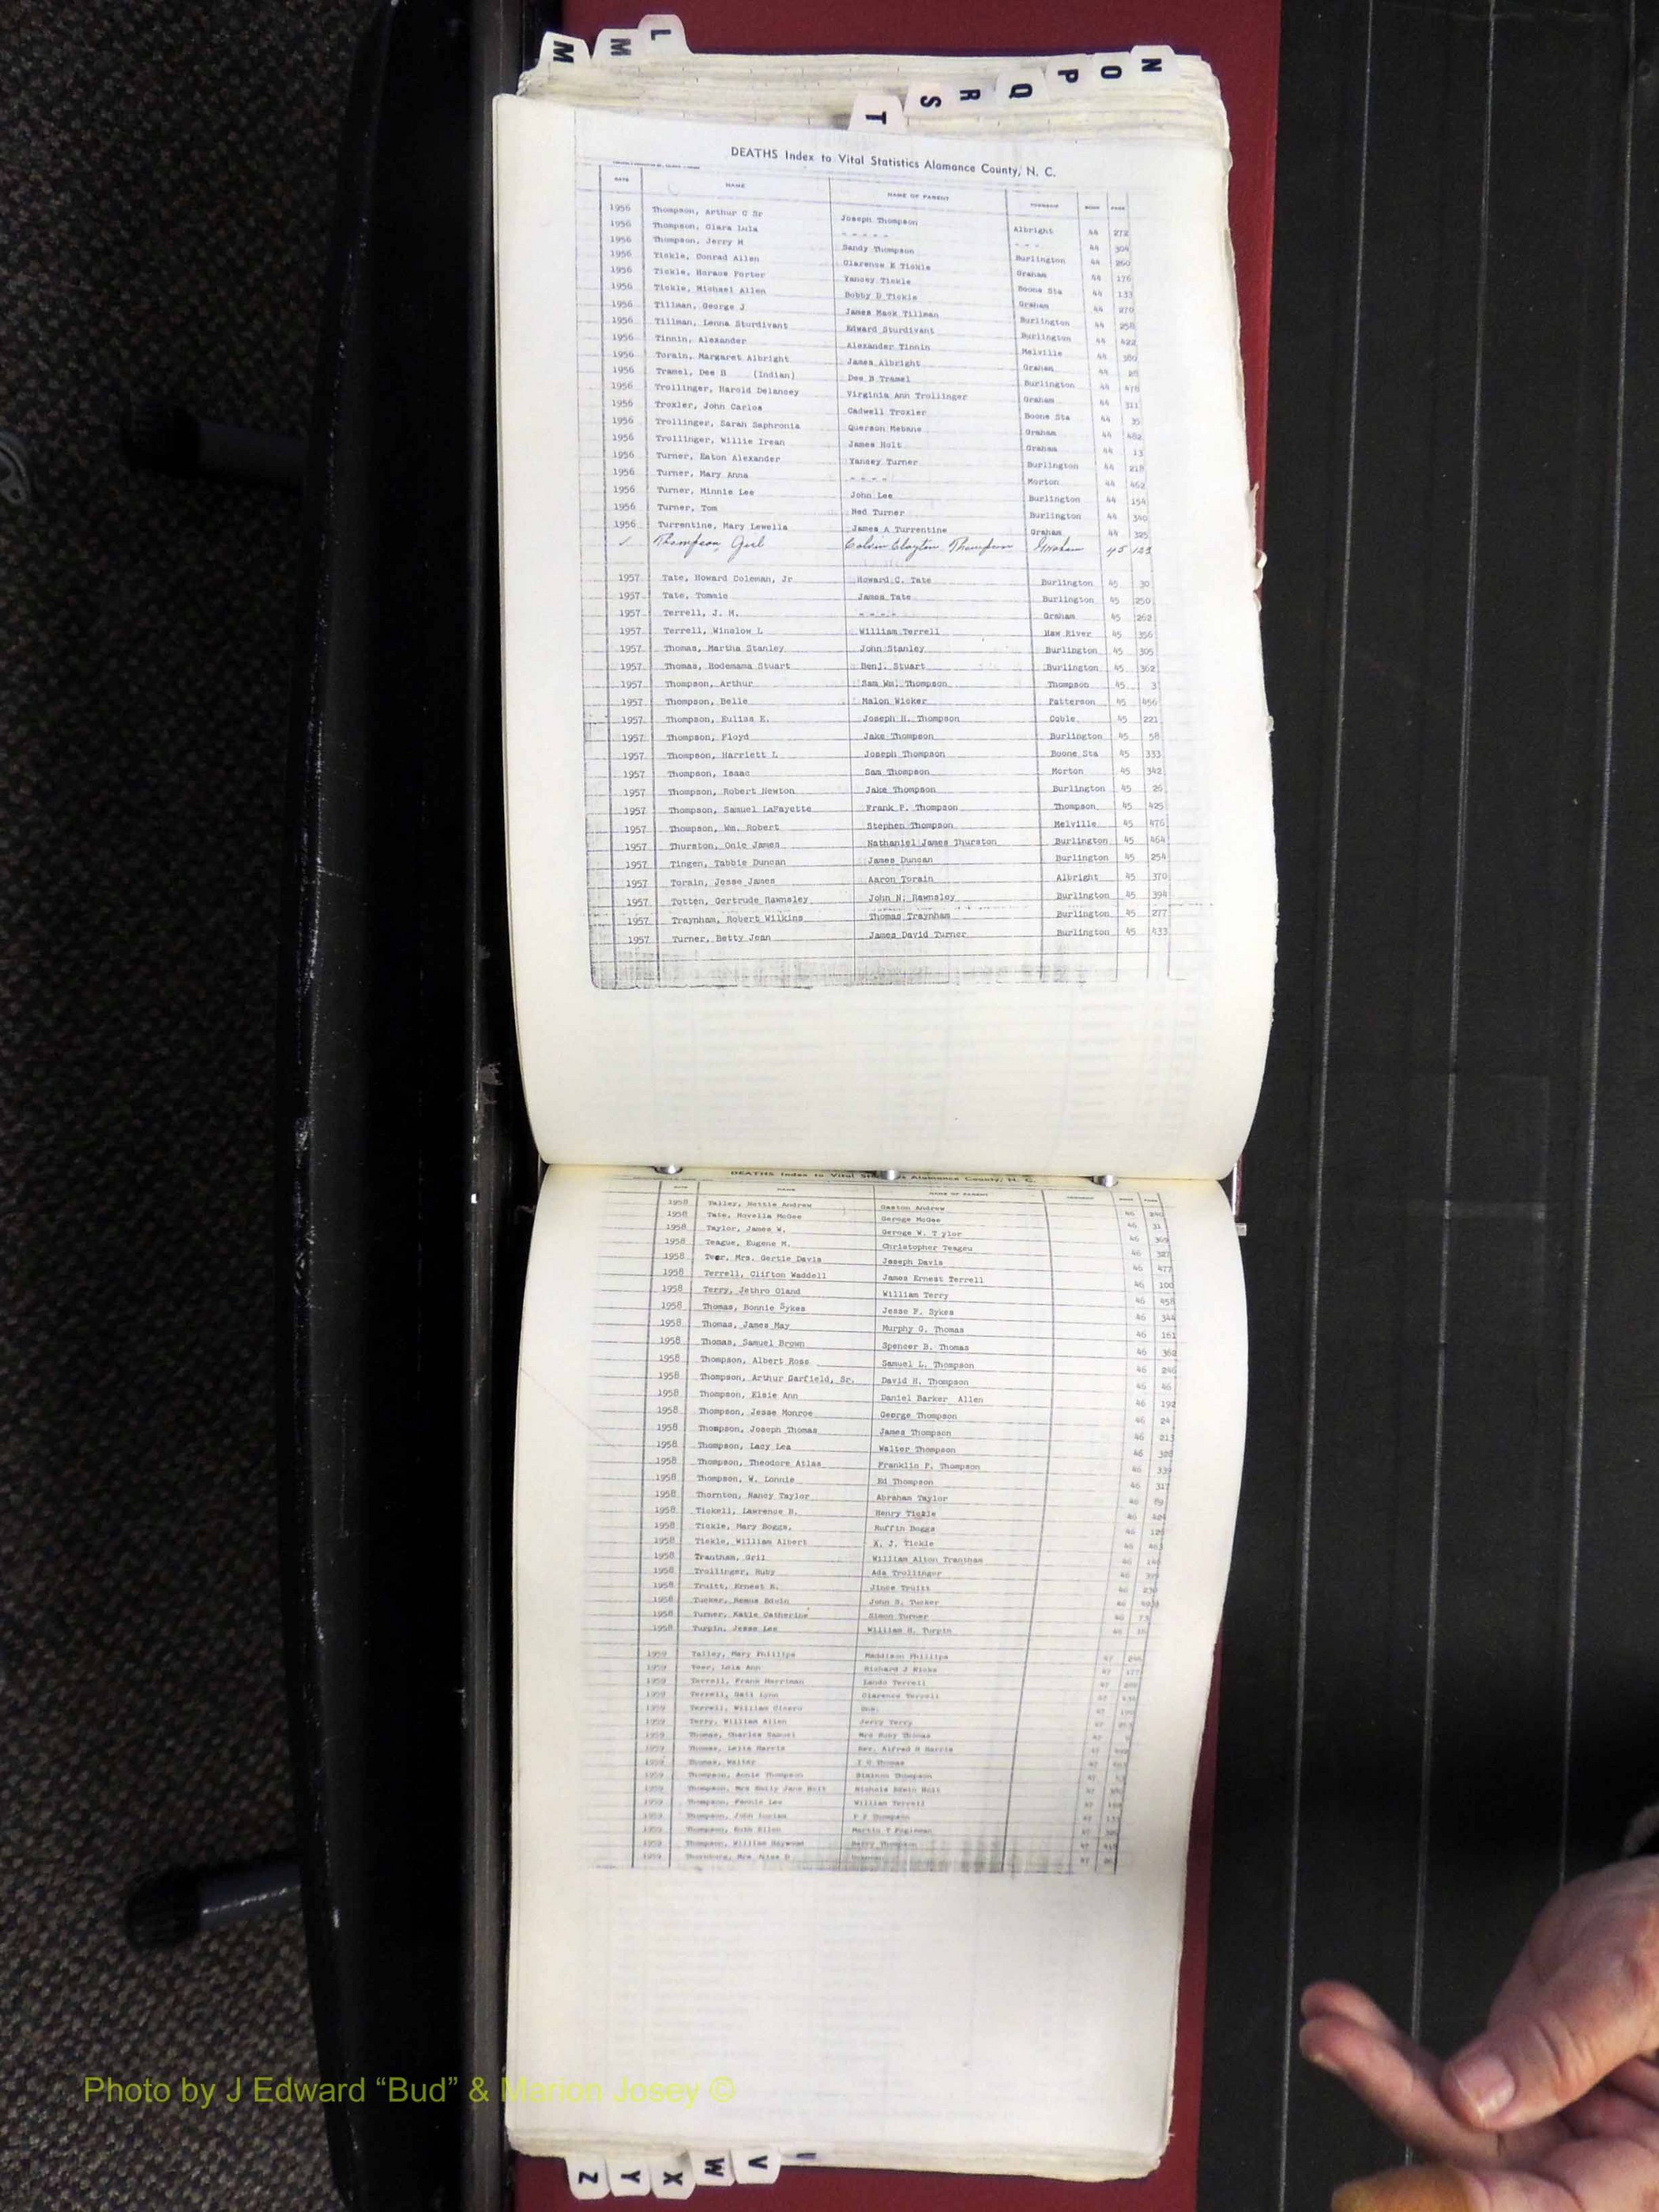 M M L N
O
P
Q
R
S
T
DEATHS Index to Vital Statistics Alamance County, N. C.
DATE NAME NAME OF PARENT TOWNSHIP BOOK PAGE
1956 Thompson, Arthur G Sr Joseph Thompson Albright 44 272
1956 Thompson, Clara Lula - - - - - - - - 44 304
1956 Thompson, Jerry M Sandy Thompson Burlington 44 260
1956 Tickle, Conrad Allen Clarence E Tickle Graham 44 176
1956 Tickle, Horace Porter Yancey Tickle Boone Sta 44 133
1956 Tickle, Michael Allen Bobby D Tickle Graham 44 270
1956 Tillman, George J James Mack Tillman Burlington 44 258
1956 Tillman, Lenna Sturdivant Edward Sturdivant Burlington 44 422
1956 Tinnin, Alexander Alexander Tinnin Melville 44 380
1956 Torain, Margaret Albright James Albright Graham 44 28
1956 Tramel, Dee B (Indian) Dee B Tramel Burlington 44 478
1956 Trollinger, Harold Delancey Virginia Ann Trollinger Graham 44 311
1956 Troxler, John Carlos Cadwell Troxler Boone Sta 44 35
1956 Trollinger, Sarah Saphronia Querson Mebane Graham 44 482
1956 Trollinger, Willie Irean James Holt Graham 44 13
1956 Turner, Eaton Alexander Yancey Turner Burlington 44 218
1956 Turner, Mary Anna - - - - Morton 44 462
1956 Turner, Minnie Lee John Lee Burlington 44 154
1956 Turner, Tom Ned Turner Burlington 44 340
1956 Turrentine, Mary Lewella James A Turrentine Graham 44 325
✓ Thompson, Girl Calvin Clayton Thompson Graham 45 123
1957 Tate, Howard Coleman, Jr Howard C. Tate Burlington 45 30
1957 Tate, Tommie James Tate Burlington 45 250
1957 Terrell, J. M. - - - - Graham 45 262
1957 Terrell, Winslow L William Terrell Haw River 45 356
1957 Thomas, Martha Stanley John Stanley Burlington 45 305
1957 Thomas, Rodemama Stuart Benj. Stuart Burlington 45 362
1957 Thompson, Arthur Sam Wm. Thompson Thompson 45 3
1957 Thompson, Belle Malon Wicker Patterson 45 456
1957 Thompson, Euliss E. Joseph H. Thompson Coble 45 221
1957 Thompson, Floyd Jake Thompson Burlington 45 58
1957 Thompson, Harriett L Joseph Thompson Boone Sta 45 333
1957 Thompson, Isaac Sam Thompson Morton 45 342
1957 Thompson, Robert Newton Jake Thompson Burlington 45 26
1957 Thompson, Samuel LaFayette Frank P. Thompson Thompson 45 425
1957 Thompson, Wm. Robert Stephen Thompson Melville 45 476
1957 Thurston, Onie James Nathaniel James Thurston Burlington 45 464
1957 Tingen, Tabbie Duncan James Duncan Burlington 45 254
1957 Torain, Jesse James Aaron Torain Albright 45 370
1957 Totten, Gertrude Rawnsley John N. Rawnsley Burlington 45 394
1957 Traynham, Robert Wilkins Thomas Traynham Burlington 45 277
1957 Turner, Betty Jean James David Turner Burlington 45 433
DEATHS Index to Vital Statistics Alamance County, N. C.
DATE NAME NAME OF PARENT TOWNSHIP BOOK PAGE
1958 Talley, Hettie Andrew Gaston Andrew 46
1958 Tate, Novella McGee Geroge McGee 46 31
1958 Taylor, James W. Geroge W. T ylor 46 369
1958 Teague, Eugene M. Christopher Teageu 46 327
1958 Teer, Mrs. Gertie Davis Joseph Davis 46 477
1958 Terrell, Clifton Waddell James Ernest Terrell 46 100
1958 Terry, Jethro Oland William Terry 46 458
1958 Thomas, Bonnie Sykes Jesse F. Sykes 46 344
1958 Thomas, James May Murphy G. Thomas 46 161
1958 Thomas, Samuel Brown Spencer B. Thomas 46 362
1958 Thompson, Albert Ross Samuel L. Thompson 46 246
1958 Thompson, Arthur Garfield, Sr. David H. Thompson 46 46
1958 Thompson, Elsie Ann Daniel Barker Allen 46 192
1958 Thompson, Jesse Monroe George Thompson 46 24
1958 Thompson, Joseph Thomas James Thompson 46 213
1958 Thompson, Lacy Lea Walter Thompson 46 328
1958 Thompson, Theodore Atlas Franklin P. Thompson 46 339
1958 Thompson, W. Lonnie Ed Thompson 46 317
1958 Thornton, Nancy Taylor Abraham Taylor 46 89
1958 Tickell, Lawrence B. Henry Tickle 46
1958 Tickle, Mary Boggs, Ruffin Boggs 46
1958 Tickle, William Albert X. J. Tickle 46
1958 Trantham, Gril William Alton Trantham 46
1958 Trollinger, Ruby Ada Trollinger 46
1958 Truitt, Ernest B. Jince Truitt 46
1958 Tucker, Remus Edwin John R. Tucker 46
1958 Turner, Katie Catherine Simon Turner 46 73
1958 Turpin, Jesse Lee William H. Turpin 46
1959 Talley, Mary Phillips Maddison Phillips 47
1959 Teer, Lola Ann Richard J Hicks 47
1959 Terrell, Frank Harriman Lando Terrell 47
1959 Terrell, Gail Lynn Clarence Terrell 47
1959 Terrell, William Cicero 47
1959 Terry, William Allen Jerry Terry 47
1959 Thomas, Charles Samuel Mrs Ruby Thomas 47
1959 Thomas, Lelia Harris Rev. Alfred H Harris 47
1959 Thomas, Walter Thomas 47
1959 Thompson, Annie Thompson Thompson 47
1959 Thompson, Mrs Emily Jane Holt Edwin Holt 47
1959 Thompson, Fannie Lee William Terrell 47
1959 Thompson, John Thompson 47
1959 Thompson, Ruth Ellen Martin T 47
1959 Thompson, William Haywood Thompson 47
1959 Mrs 47
Photo by J Edward “Bud” & Marion Josey ©
Z Y X W V